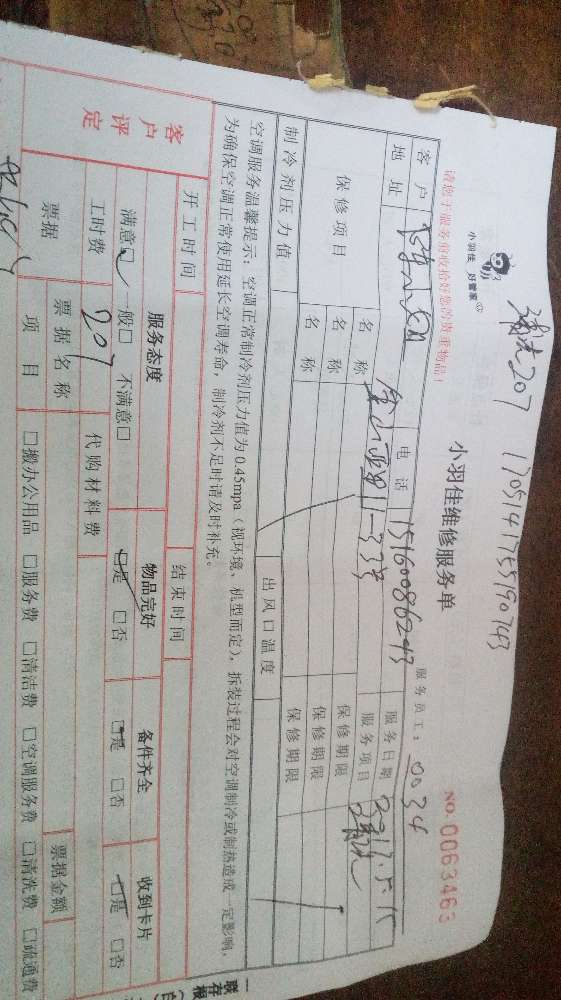 清洗207 1705141755190743
小羽佳 好管家
小羽佳维修服务单
NO.0063463
请您于服务前收拾好您的贵重物品!
服务员工: 0034
客户 电话 15160086243 服务日期 2017.5.15
地址 11-33号 服务项目 清洗
保修项目 名称 保修期限
名称 保修期限
名称 保修期限
制冷剂压力值 出风口温度
空调服务温馨提示:空调正常制冷剂压力值为0.45mpa(视环境、机型而定),拆装过程会对空调制冷或制热造成一定影响,
为确保空调正常使用延长空调寿命,制冷剂不足时请及时补充。
开工时间 结束时间
客户评定 服务态度 物品完好 备件齐全 收到卡片
满意□ 一般□ 不满意□ □是 □否 □是 □否 □是 □否
工时费 207 代购材料费
票据 票据名称 票据金额
项目 □搬办公用品 □服务费 □清洁费 □空调服务费 □清洗费 □疏通费
一联存根